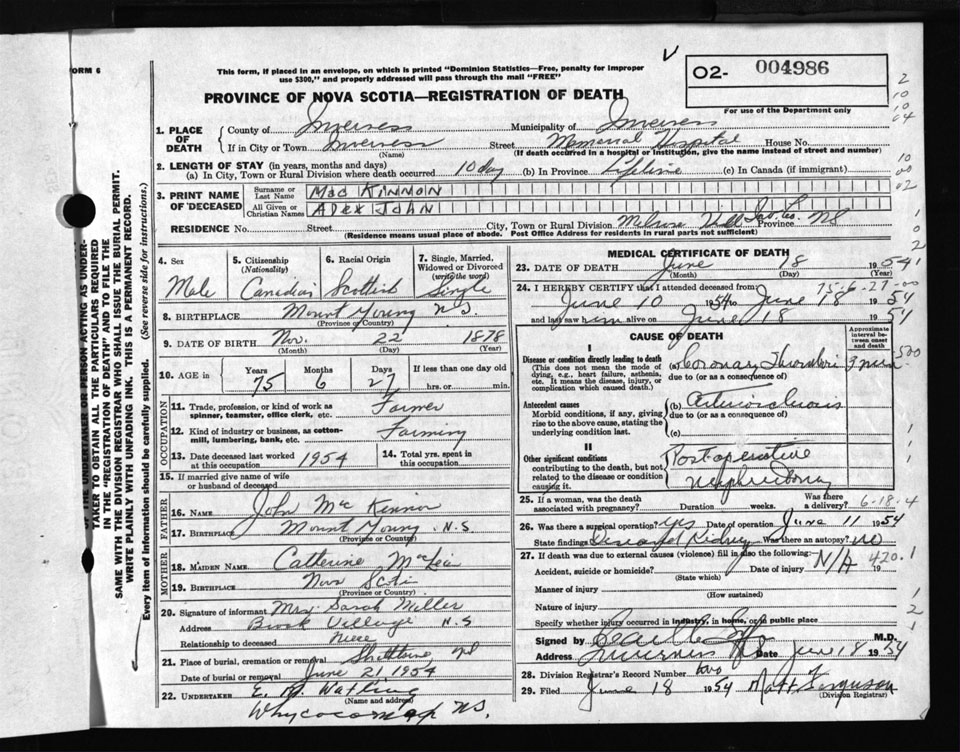 ORM 6
This form, if placed in an envelope, on which is printed "Dominion Statistics—Free, penalty for improper
use $300," and properly addressed will pass through the mail "FREE"
O2- 004986
PROVINCE OF NOVA SCOTIA—REGISTRATION OF DEATH
For use of the Department only
2
10
10
04
10
00
02
1
0
2
BY THE UNDERTAKER OR PERSON ACTING AS UNDER-
TAKER TO OBTAIN ALL THE PARTICULARS REQUIRED
IN THE "REGISTRATION OF DEATH" AND TO FILE THE
SAME WITH THE DIVISION REGISTRAR WHO SHALL ISSUE THE BURIAL PERMIT.
WRITE PLAINLY WITH UNFADING INK. THIS IS A PERMANENT RECORD.
Every item of information should be carefully supplied. (See reverse side for instructions.)
1. PLACE OF DEATH
County of Inverness Municipality of Inverness
If in City or Town Inverness Street Memorial Hospital House No.
(Name) (If death occurred in a hospital or institution, give the name instead of street and number)
2. LENGTH OF STAY (in years, months and days)
(a) In City, Town or Rural Division where death occurred 10 day (b) In Province Lifetime (c) In Canada (if immigrant)
3. PRINT NAME OF DECEASED
Surname or Last Name MacKINNON
All Given or Christian Names ALEX JOHN
RESIDENCE No. Street City, Town or Rural Division Hill Province NS
(Residence means usual place of abode. Post Office Address for residents in rural parts not sufficient)
4. Sex Male
5. Citizenship (Nationality) Canadian
6. Racial Origin Scottish
7. Single, Married, Widowed or Divorced (write the word) Single
8. BIRTHPLACE Mount Young N.S.
(Province or Country)
9. DATE OF BIRTH Nov. 22 1878
(Month) (Day) (Year)
10. AGE in Years 75 Months 6 Days 27 If less than one day old
hrs. or min.
OCCUPATION
11. Trade, profession, or kind of work as spinner, teamster, office clerk, etc. Farmer
12. Kind of industry or business, as cotton-mill, lumbering, bank, etc. Farming
13. Date deceased last worked at this occupation 1954
14. Total yrs. spent in this occupation
15. If married give name of wife or husband of deceased
FATHER
16. NAME John MacKinnon
17. BIRTHPLACE Mount Young N.S.
(Province or Country)
MOTHER
18. MAIDEN NAME Catherine
19. BIRTHPLACE Nova Scotia
(Province or Country)
20. Signature of informant Mrs. Sarah Miller
Address Brook Village N.S
Relationship to deceased Niece
21. Place of burial, cremation or removal
Date of burial or removal June 21 1954
22. UNDERTAKER E. Watling
(Name and address)
Whycocomagh NS.
MEDICAL CERTIFICATE OF DEATH
23. DATE OF DEATH June 18 1954
(Month) (Day) (Year)
75-6-27-00
24. I HEREBY CERTIFY that I attended deceased from
June 10 1954 to June 18 1954
and last saw him alive on June 18 1954
CAUSE OF DEATH
Approximate interval between onset and death
I
Disease or condition directly leading to death
(This does not mean the mode of dying, e.g., heart failure, asthenia, etc. It means the disease, injury, or complication which caused death.)
(a) Coronary Thrombosis
due to (or as a consequence of)
500
Antecedent causes
Morbid conditions, if any, giving rise to the above cause, stating the underlying condition last.
(b)
due to (or as a consequence of)
(c)
II
Other significant conditions
contributing to the death, but not related to the disease or condition causing it.
Postoperative
25. If a woman, was the death associated with pregnancy? Duration weeks. Was there a delivery?
6-18-4
26. Was there a surgical operation? yes Date of operation June 11 1954
State findings Diseased Kidney Was there an autopsy? no
27. If death was due to external causes (violence) fill in also the following:
Accident, suicide or homicide? Date of injury N/A 19
420.1
(State which)
Manner of injury
(How sustained)
Nature of injury
Specify whether injury occurred in industry, in home, or in public place
Signed by M.D.
Address Inverness NS Date June 18 1954
28. Division Registrar's Record Number
29. Filed June 18 1954 Matt Ferguson
(Division Registrar)